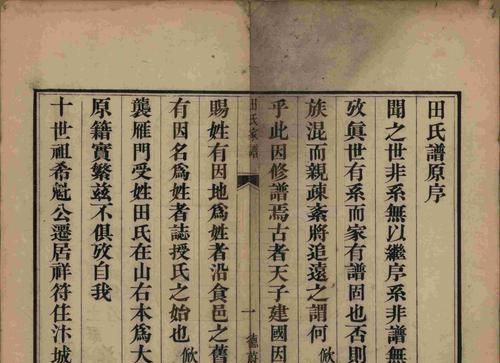 田氏譜原序
聞之世非系無以繼序系非譜無
攷眞世有系而家有譜固也否則
族混而親疎紊將追遠之謂何
乎此因修譜焉古者天子建國因
田氏家譜
一
德蔚
賜姓有因地爲姓者沿食邑之舊
有因名爲姓者誌授氏之始也
襲雁門受姓田氏在山右本爲大
原籍實繁茲不俱攷自我
十世祖希魁公遷居祥符住汴城